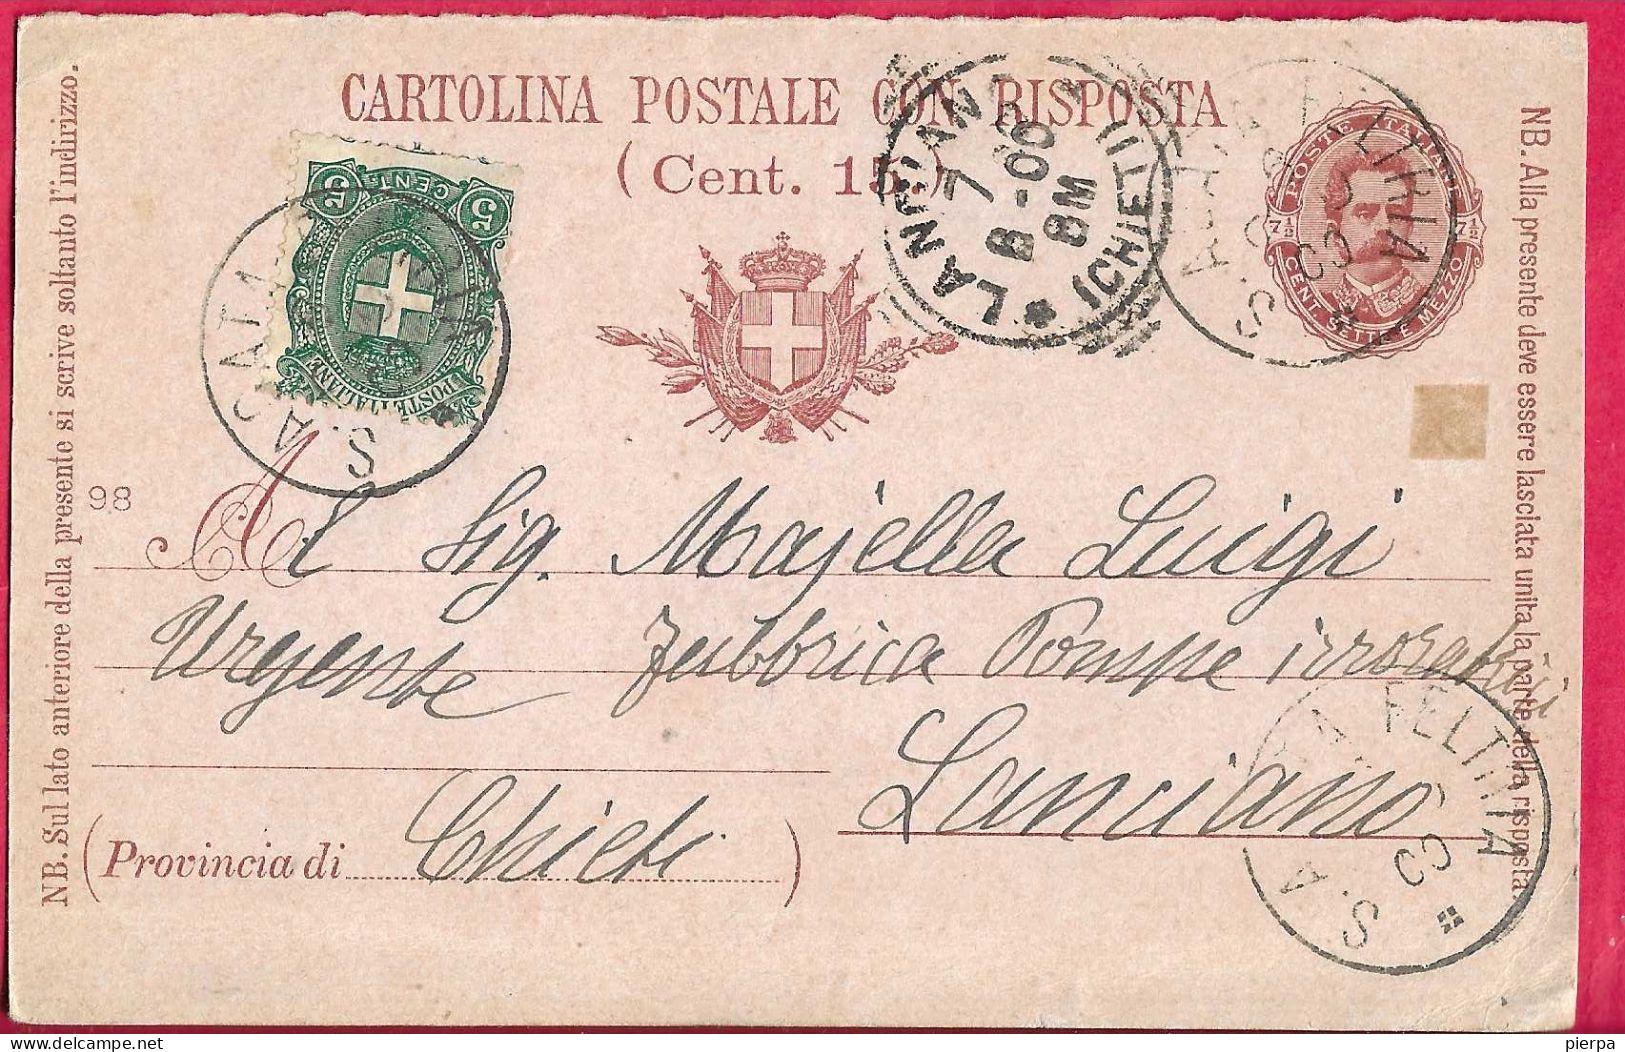 CARTOLINA POSTALE CON RISPOSTA
(Cent. 15.)
NB. Sul lato anteriore della presente si scrive soltanto l'indirizzo.
NB. Alla presente deve essere lasciata unita la parte della risposta.
5 CENT. 5
POSTE ITALIANE
S. AGATA
LANCIANO (CHIETI)
7
6-00
8M
S. AGATA FELTRIA
POSTE ITALIANE
7½ 7½
CENT. SETTE E MEZZO
98
Al Sig. Majella Luigi
Urgente Fabbrica Pompe irroratrici
Lanciano
(Provincia di Chieti)
S. A TA FELTRIA
pierpa